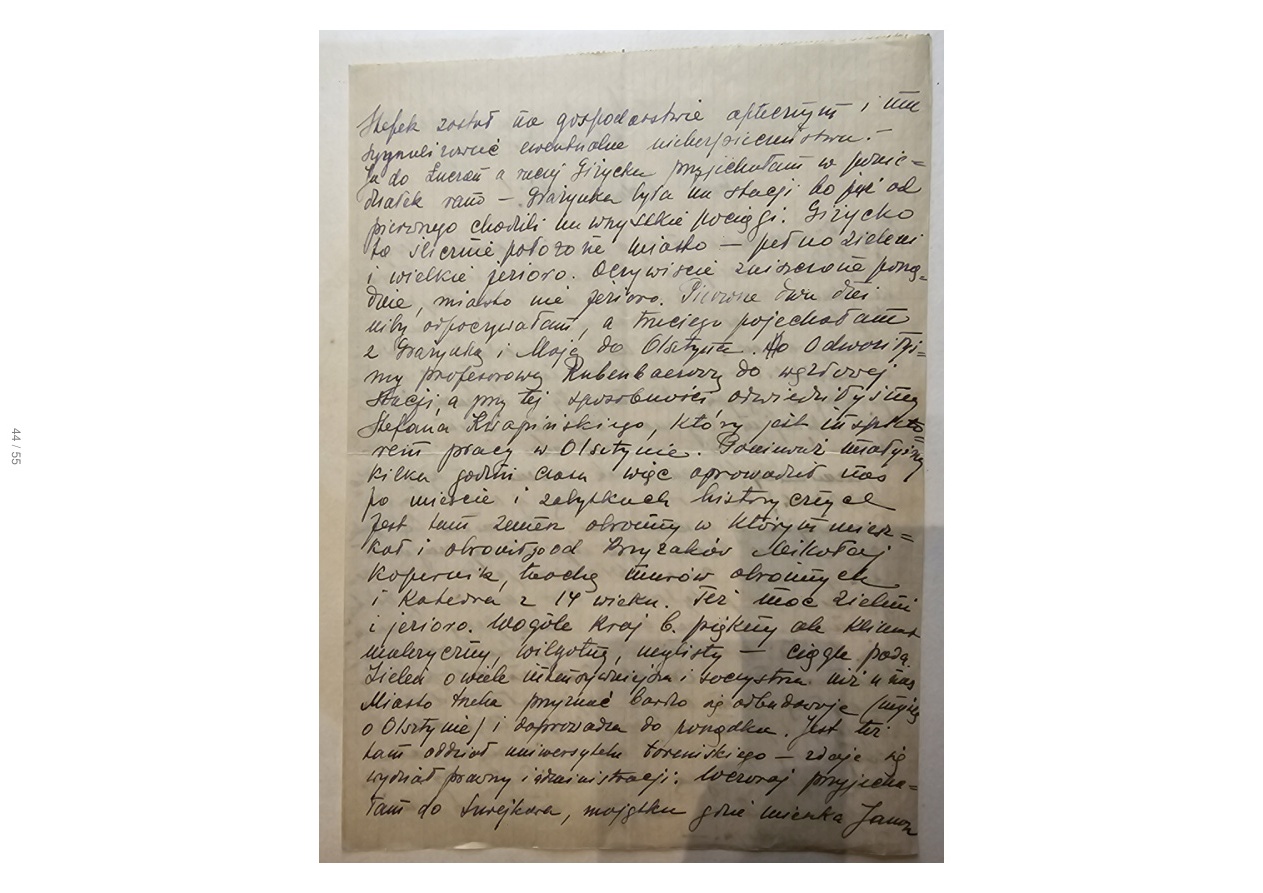 Stefek został na gospodarstwie aptecznym i ma
sygnalizować ewentualne niebezpieczeństwa. –
Ja do Łuczan a raczej Giżycka przyjechałam w ponie=
działek rano – Grażynka była na stacji bo już od
pierwszego chodzili na wszystkie pociągi. Giżycko
to ślicznie położone miasto – pełno zieleni
i wielkie jezioro. Oczywiście zniszczone porzą=
dnie, miasto nie jezioro. Pierwsze dwa dni
niby odpoczywałam, a trzeciego pojechałam
z Grażynką i Mają do Olsztyna. Odwoziły=
my profesorową do węzłowej
stacji, a przy tej sposobności odwiedziłyśmy
Stefana Kwapińskiego, który jest inspekto
rem pracy w Olsztynie. Ponieważ miałyśmy
kilka godzin czasu więc oprowadził nas
po mieście i zabytkach historycznych
Jest tam zamek obronny w którym miesz=
kał i obronił go od Krzyżaków Mikołaj
Kopernik, trochę murów obronnych
i Katedra z 14 wieku. Też moc zieleni
i jezioro. Wogóle kraj b. piękny ale klimat
malaryczny, wilgotny, mglisty – ciągle pada.
Zieleń o wiele intensywniejsza i soczystsza niż u nas
Miasto trzeba przyznać bardzo się odbudowuje (myślę
o Olsztynie) i doprowadza do porządku. Jest też
tam oddział uniwersytetu toruńskiego – zdaje się
wydział prawny i administracji. Wczoraj przyjecha=
łam do majątku gdzie mieszka